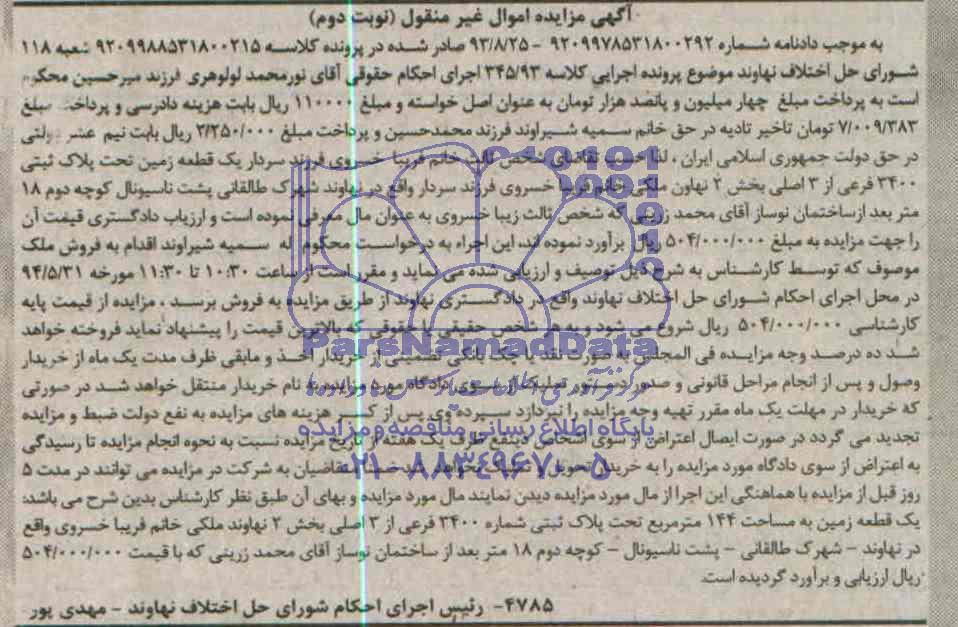 آگهی مزایده اموال غیر منقول (نوبت دوم)
به موجب دادنامه شماره ۹۲۰۹۹۷۸۵۳۱۸۰۰۲۹۲ - ۹۳/۸/۲۵ صادر شده در پرونده کلاسه ۹۲۰۹۹۸۸۵۳۱۸۰۰۲۱۵ شعبه ۱۱۸
شورای حل اختلاف نهاوند موضوع پرونده اجرایی کلاسه ۳۴۵/۹۳ اجرای احکام حقوقی آقای نورمحمد لولوهری فرزند میرحسین محکوم
است به پرداخت مبلغ چهار میلیون و پانصد هزار تومان به عنوان اصل خواسته و مبلغ ۱۱۰۰۰۰ ریال بابت هزینه دادرسی و پرداخت مبلغ
۷/۰۰۹/۳۸۳ تومان تاخیر تادیه در حق خانم سمیه شیراوند فرزند محمدحسین و پرداخت مبلغ ۲/۲۵۰/۰۰۰ ریال بابت نیم عشر دولتی
در حق دولت جمهوری اسلامی ایران ، لذا حسب تقاضای شخص ثالث خانم فریبا خسروی فرزند سردار یک قطعه زمین تحت پلاک ثبتی
۳۴۰۰ فرعی از ۳ اصلی بخش ۲ نهاون ملکی خانم فریبا خسروی فرزند سردار واقع در نهاوند شهرک طالقانی پشت ناسیونال کوچه دوم ۱۸
متر بعد ازساختمان نوساز آقای محمد زرینی که شخص ثالث زیبا خسروی به عنوان مال معرفی نموده است و ارزیاب دادگستری قیمت آن
را جهت مزایده به مبلغ ۵۰۴/۰۰۰/۰۰۰ ریال برآورد نموده اند، این اجراء به درخواست محکوم له سمیه شیراوند اقدام به فروش ملک
موصوف که توسط کارشناس به شرح ذیل توصیف و ارزیابی شده می نماید و مقرر است از ساعت ۱۰:۳۰ تا ۱۱:۳۰ مورخه ۹۴/۵/۳۱
در محل اجرای احکام شورای حل اختلاف نهاوند واقع در دادگستری نهاوند از طریق مزایده به فروش برسد ، مزایده از قیمت پایه
کارشناسی ۵۰۴/۰۰۰/۰۰۰ ریال شروع می شود و به هر شخص حقیقی یا حقوقی که بالاترین قیمت را پیشنهاد نماید فروخته خواهد
شد ده درصد وجه مزایده فی المجلس به صورت نقد یا چک بانکی تضمینی از خریدار اخذ و مابقی ظرف مدت یک ماه از خریدار
وصول و پس از انجام مراحل قانونی و صدور دستور تملیک از سوی دادگاه مورد مزایده به نام خریدار منتقل خواهد شد در صورتی
که خریدار در مهلت یک ماه مقرر تهیه وجه مزایده را نپردازد سپرده وی پس از کسر هزینه های مزایده به نفع دولت ضبط و مزایده
تجدید می گردد در صورت ایصال اعتراض از سوی اشخاص ذینفع ظرف یک هفته از تاریخ مزایده نسبت به نحوه انجام مزایده تا رسیدگی
به اعتراض از سوی دادگاه مورد مزایده را به خریدار تحویل و تملیک نخواهد شد ضمنا متقاضیان به شرکت در مزایده می توانند در مدت ۵
روز قبل از مزایده با هماهنگی این اجرا از مال مورد مزایده دیدن نمایند مال مورد مزایده و بهای آن طبق نظر کارشناس بدین شرح می باشد:
یک قطعه زمین به مساحت ۱۴۴ مترمربع تحت پلاک ثبتی شماره ۳۴۰۰ فرعی از ۳ اصلی بخش ۲ نهاوند ملکی خانم فریبا خسروی واقع
در نهاوند - شهرک طالقانی - پشت ناسیونال - کوچه دوم ۱۸ متر بعد از ساختمان نوساز آقای محمد زرینی که با قیمت ۵۰۴/۰۰۰/۰۰۰
ریال ارزیابی و برآورد گردیده است.
۴۷۸۵- رئیس اجرای احکام شورای حل اختلاف نهاوند - مهدی پور
ParsNamadData
پایگاه اطلاع رسانی مناقصه و مزایده
۰۲۱-۸۸۳۴۹۶۷۰-۵